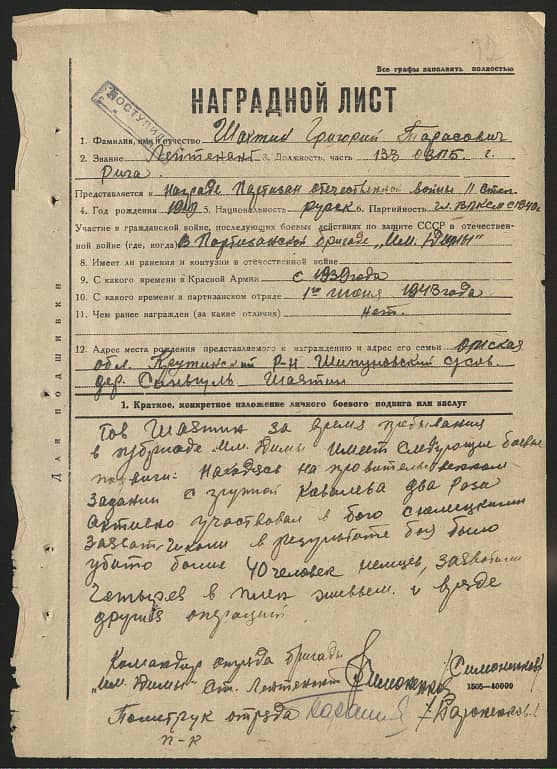 Все графы заполнять полностью
ПОСТУПИЛ
НАГРАДНОЙ ЛИСТ
1. Фамилия, имя и отчество Шахтин Григорий Тарасович
2. Звание Лейтенант 3. Должность, часть 133 ОЗПБ. г.
Рига.
Представляется к награде Партизан отечественной войны II степ
4. Год рождения 1919 5. Национальность русск 6. Партийность чл. ВЛКСМ с 1940 г
Участие в гражданской войне, последующих боевых действиях по защите СССР в отечествен-
ной войне (где, когда) В Партизанской бригаде „Им. Димы"
8. Имеет ли ранения и контузии в отечественной войне
9. С какого времени в Красной Армии с 1939 года
10. С какого времени в партизанском отряде 1го июня 1943 года
11. Чем ранее награжден (за какие отличия) нет.
12. Адрес места рождения представляемого к награждению и адрес его семьи Омская
обл. Крутинский р-н Шипуновский с/сов.
дер. Шахтин
Для подшивки
1. Краткое, конкретное изложение личного боевого подвига или заслуг
Тов Шахтин за время пребывания
в п/бригаде Им. Димы имеет следующие боевые
подвиги: Находясь на
задании с группой Ковалева два раза
активно участвовал в бою с немецкими
в результате боя было
убито более 40 человек немцев, захватили
четырех в плен живьем. и в ряде
других операций.
Командир отряда бригады
„Им. Димы" ст. лейтенант Симоненков /Симоненков/
1505—40000
Политрук отряда
п-к